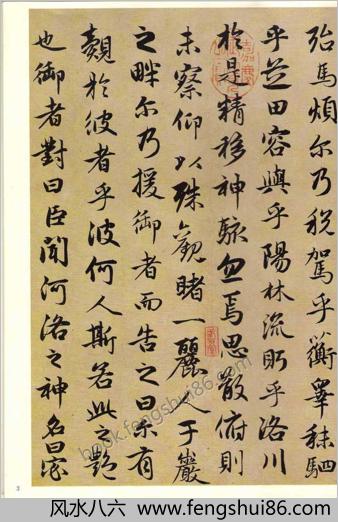 殆馬煩尔乃稅駕乎蘅皋秣駟
乎芝田容與乎陽林流眄乎洛川
於是精移神駭忽焉思散俯則
未察仰以殊觀睹一麗人于巖
之畔尔乃援御者而告之曰尔有
覿於彼者乎彼何人斯若此之艷
也御者對曰臣聞河洛之神名曰宓
3
book.fengshui86.com
风水八六 www.fengshui86.com